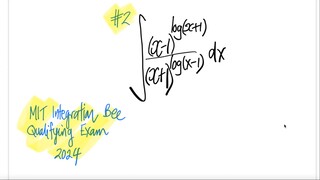 #2
∫ (x-1)^log(x+1) / (x+1)^log(x-1) dx
MIT Integration Bee
Qualifying Exam
2024